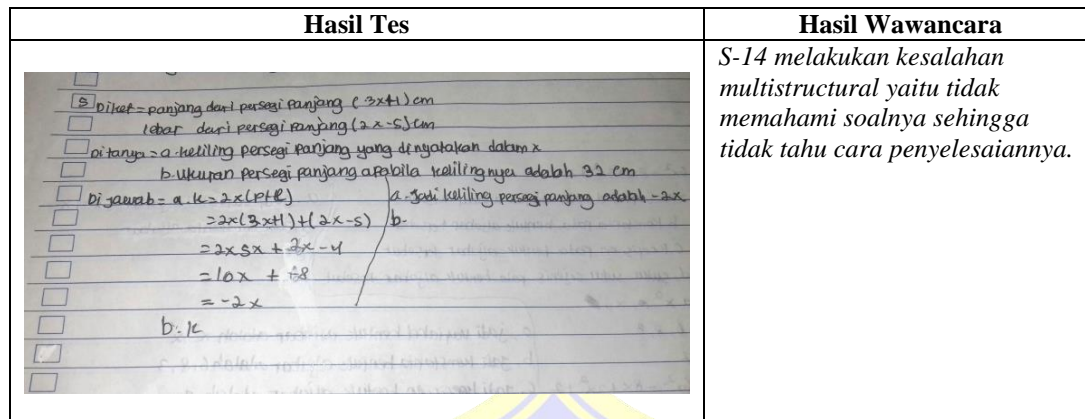 Hasil Tes
Hasil Wawancara
5 Diket = panjang dari persegi panjang (3x+1) cm
lebar dari persegi panjang (2x-5) cm
Ditanya = a. keliling persegi panjang yang dinyatakan dalam x
b. Ukuran persegi panjang apabila kelilingnya adalah 32 cm
Dijawab = a. k = 2x(p+l)
= 2x(3x+1)+(2x-5)
= 2x5x + 2x-4
= 10x + -8
= -2x
b. k
a. Jadi keliling persegi panjang adalah -2x
b.
S-14 melakukan kesalahan
multistructural yaitu tidak
memahami soalnya sehingga
tidak tahu cara penyelesaiannya.